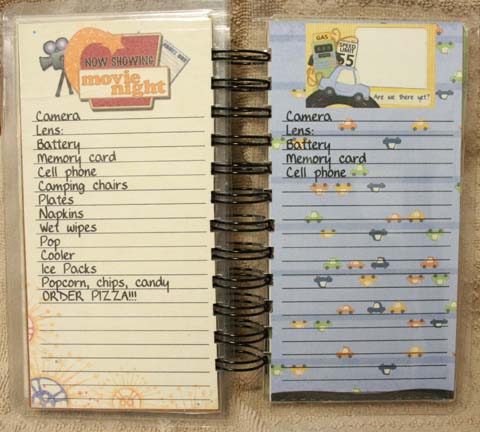 NOW SHOWING
movie
night
Camera
Lens:
Battery
Memory card
Cell phone
Camping chairs
Plates
Napkins
Wet wipes
Pop
Cooler
Ice Packs
Popcorn, chips, candy
ORDER PIZZA!!!
GAS
SPEED
LIMIT
55
Are we there yet?
Camera
Lens:
Battery
Memory card
Cell phone